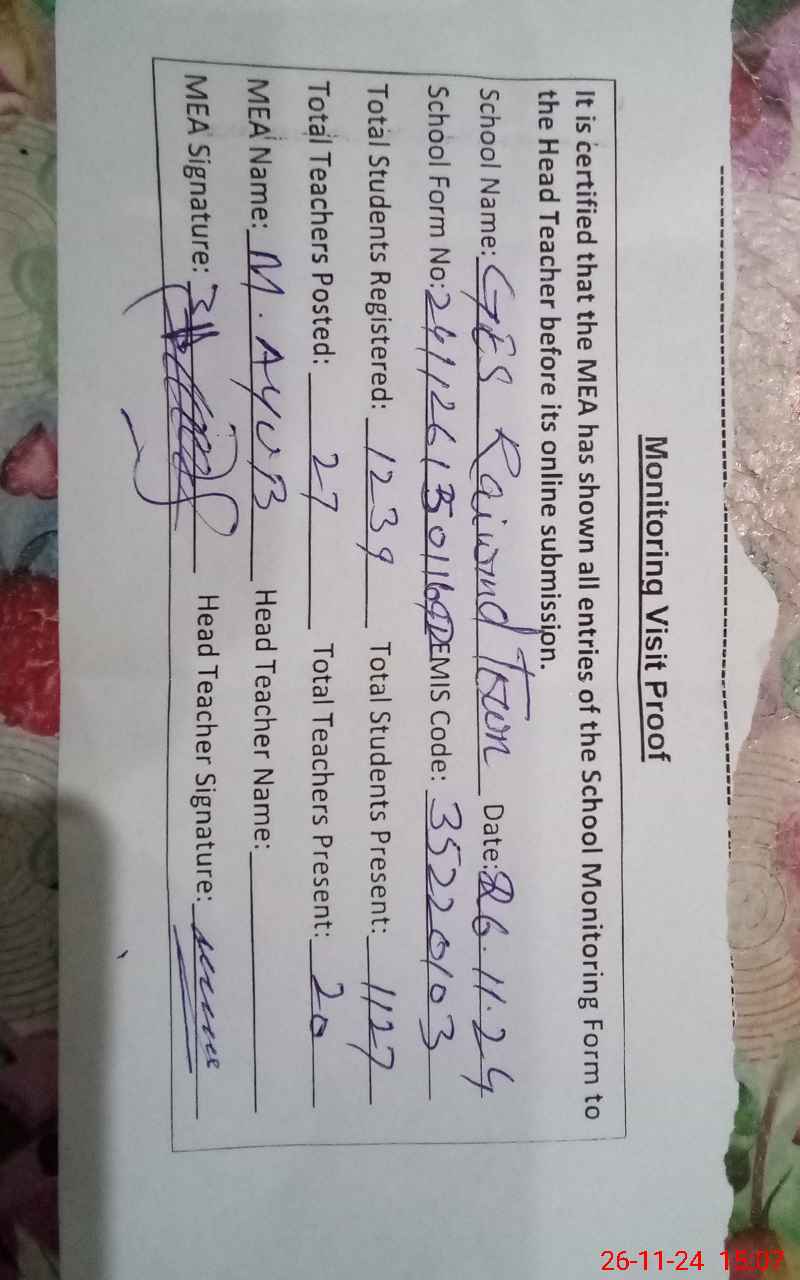 Monitoring Visit Proof
It is certified that the MEA has shown all entries of the School Monitoring Form to
the Head Teacher before its online submission.
School Name: GES Raiwind Town Date: 26.11.24
School Form No: EMIS Code: 35220103
Total Students Registered: 1239 Total Students Present: 1127
Total Teachers Posted: 27 Total Teachers Present: 20
MEA Name: M. AYUB Head Teacher Name:
MEA Signature: Head Teacher Signature:
26-11-24 15:07